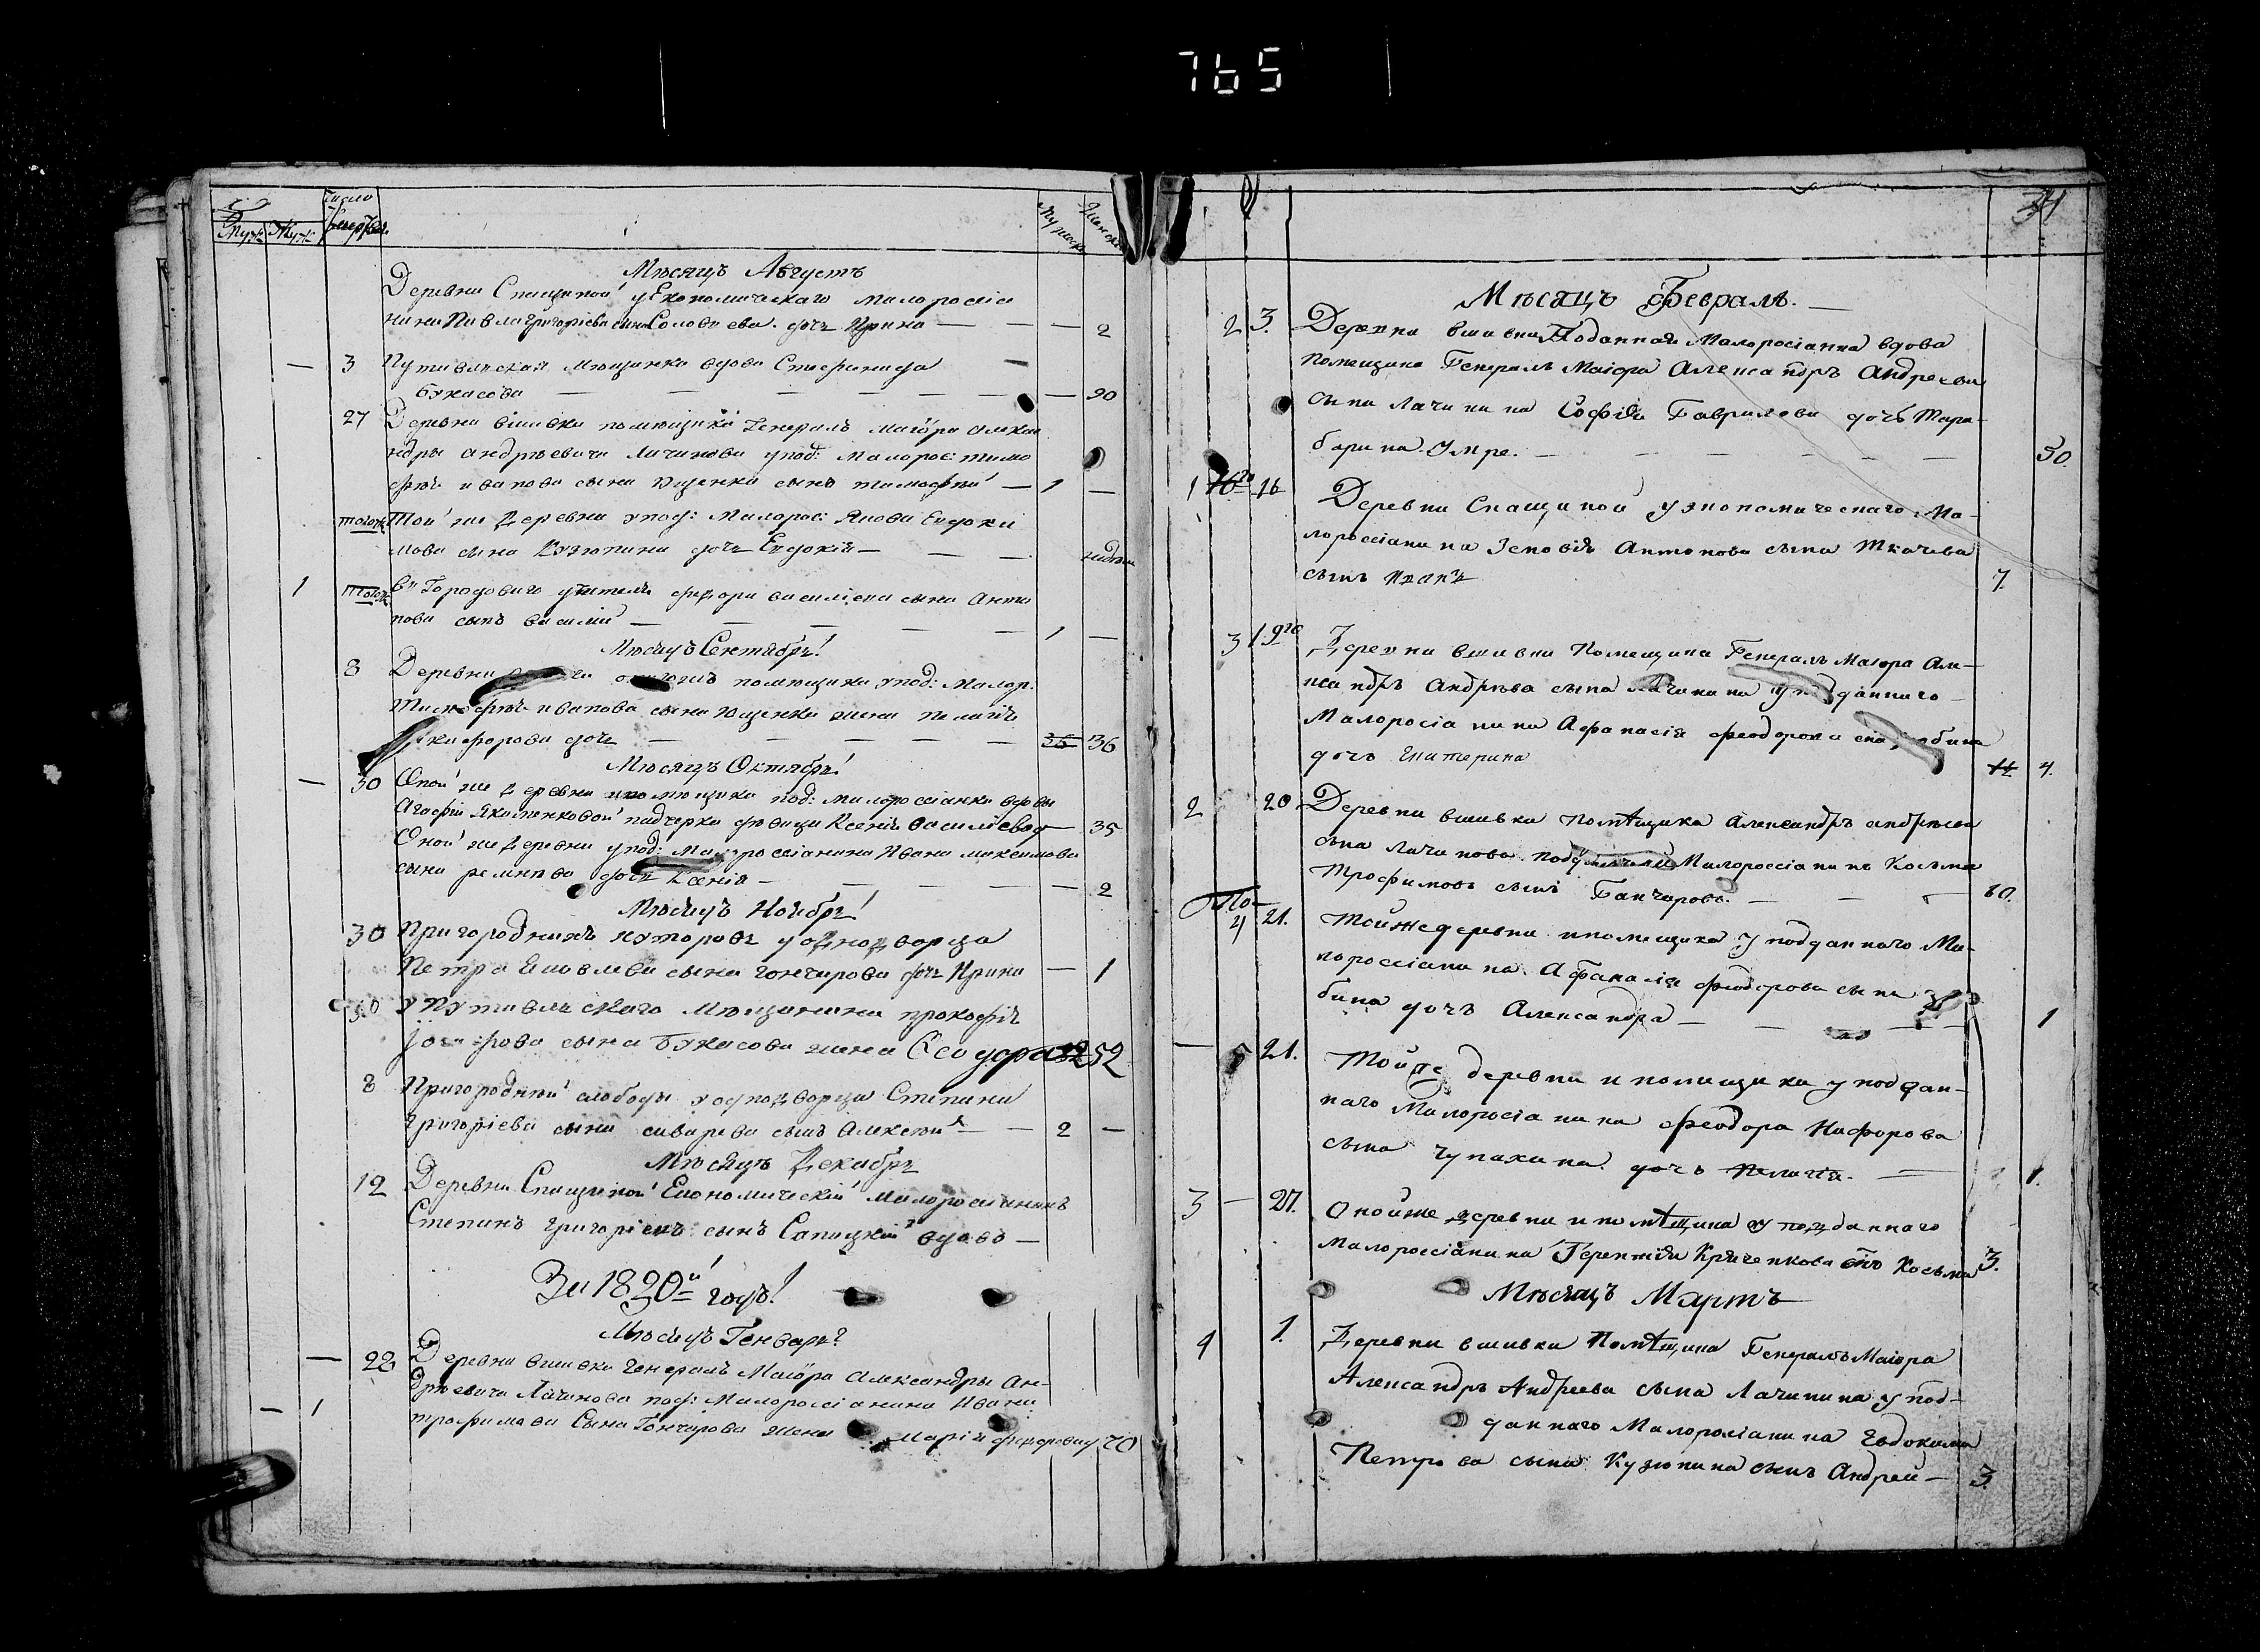 765
Муж Муж Число
Мѣсяцъ Августъ
Деревни Спащиной у Економическаго малоросія
нина Павла Григоріева сына Соловьева дочь Ирина — — — 2
— 3 Путивльская мѣщанка вдова Стефанида
Букасова — — — — — — 90
27 Деревни вшивки помѣщика Генералъ Маіора Алекса
ндры Андрѣевича Лачинова у под: Малорос: тимо
фѣя иванова сына Ющенка сынъ тимофѣй — 1 —
тогож Той же деревни у под: Малорос: Якова Евдоки
мова сына Кузюпина дочь Евдокія — — — недѣли
1 тогож Городоваго учителя федора василіева сына Анто
нова сынъ василій — — — — — 1 —
Мѣсяцъ Сентябрь
8 Деревни помѣщика у под: Малор:
Тимофѣя иванова сына Ющенки жена пелагія
кифорова дочь — — — — — 36 36
Мѣсяцъ Октябрь
— 30 Оной же деревни помѣщика под: малороссіанки вдовы
Агафіи Якименковой падчерка дѣвица Ксенія василіева — 35
Оной же деревни у под: Малороссіанина Ивана максимова
сына дочь Ксенія — — — — 2
Мѣсяцъ Ноябрь
30 Пригородныхъ хуторовъ у однодворца
Петра Яковлева сына гончарова дочь Ирина — 1
30 У Путивльскаго мѣщанина прокофія
сына Букасова жена 52 52
8 Пригородной слободы у однодворца Степана
Григоріева сына сиварева сынъ Алексѣй — — 2 —
Мѣсяцъ Декабрь
12 Деревни Спащиной Економическій малоросіанинъ
Степанъ Григоріевъ сынъ Сапицкій вдовъ —
За 1820й годъ!
Мѣсяцъ Генварь
— 22 Деревни вшивки генералъ Маіора Александры Ан-
дрѣевича Лачинова под: Малороссіанина Ивана
— 1 трофимова Сына Гончарова жена Марія федорова 70
31
Мѣсяцъ Февраль. —
2 3. Деревни вшивки Поданная Малоросіанка вдова
помещика Генералъ Маіора Александръ Андреева
сына Лачинина Софія Гаврилова дочь Мара-
барина умре. — — — — — — 30.
1 16го 16 Деревни Спащиной у экономическаго Ма-
лороссіанина Зеновія Антонова сына Ткачева
сынъ Иванъ 7.
3 19го Деревни вшивки Помещика Генералъ Маіора Але-
ксандръ Андрѣева сына Лачинина у подданнаго
Малоросіанина Афанасія феодорова сына
дочь Екатерина 11 4.
2 20 Деревни вшивки Помѣщика Александръ андрѣева
сына Лачинова Малороссіанинъ Косьма
Трофимовъ сынъ Ганчаровъ. — — — 60.
4 21. Той же деревни и помещика у подданнаго Ма-
лороссіанина Афанасія феодорова сына
бина дочь Александра — — — — 1
— 5 21. Той же деревни и помещика у поддан-
наго Малоросіанина феодора Никфорова
сына Чупахина дочь Пелагія. — 1.
3 — 27. Оной же деревни и помѣщика у подданнаго
Малороссіанина Терентія Кряченкова снъ Косьма 3.
Мѣсяцъ Мартъ
4 1. Деревни вшивки Помѣщика Генералъ Маіора
Александръ Андреева сына Лачинина у под-
даннаго Малоросіанина Евдокима
Петрова сына Кузюпина сынъ Андрей — 3